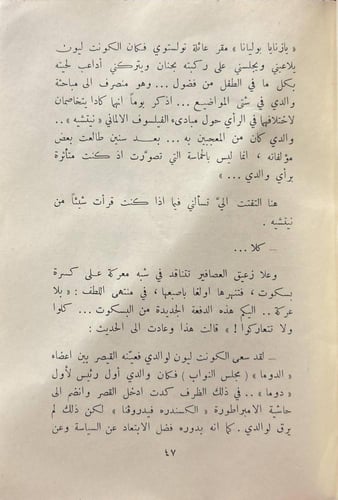 « يازنايا بوليانا » مقر عائلة تولستوي فكان الكونت ليون
يلاعبني ويجلسني على ركبته بحنان ويتركني أداعب لحيته
بكل ما في الطفل من فضول ... وهو منصرف الى مباحثة
والدي في شتى المواضيع ... اذكر يوماً انهما كادا يتخاصمان
لاختلافهما في الرأي حول مبادىء الفيلسوف الالماني « نيتشيه » ..
والدي كان من المعجبين به ... بعد سنين طالعت بعض
مؤلفاته ، انما ليس بالحماسة التي تصورت اذ كنت متأثرة
برأي والدي ... »
هنا التفتت اليّ تسألني فيما اذا كنت قرأت شيئاً من
نيتشيه .
— كلا ...
وعلا زعيق العصافير تتناقد في شبه معركة على كسرة
بسكوت ، فتنهرها اولغا باصبعها ، في منتهى اللطف : « بلا
عركة .. اليكم هذه الدفعة الجديدة من البسكوت ... كلوا
ولا تتعاركوا ! » قالت هذا وعادت الى الحديث :
— لقد سعى الكونت ليون لوالدي فعيّنه القيصر بين اعضاء
« الدوما » ( مجلس النواب ) فكان والدي أول رئيس لأول
« دوما » .. في ذلك الظرف كدت ادخل القصر وانضم الى
حاشية الامبراطورة « الكسندره فيدروفنا » لكن ذلك لم
يرق لوالدي . كما انه بدوره فضل الابتعاد عن السياسة وعن
٤٧